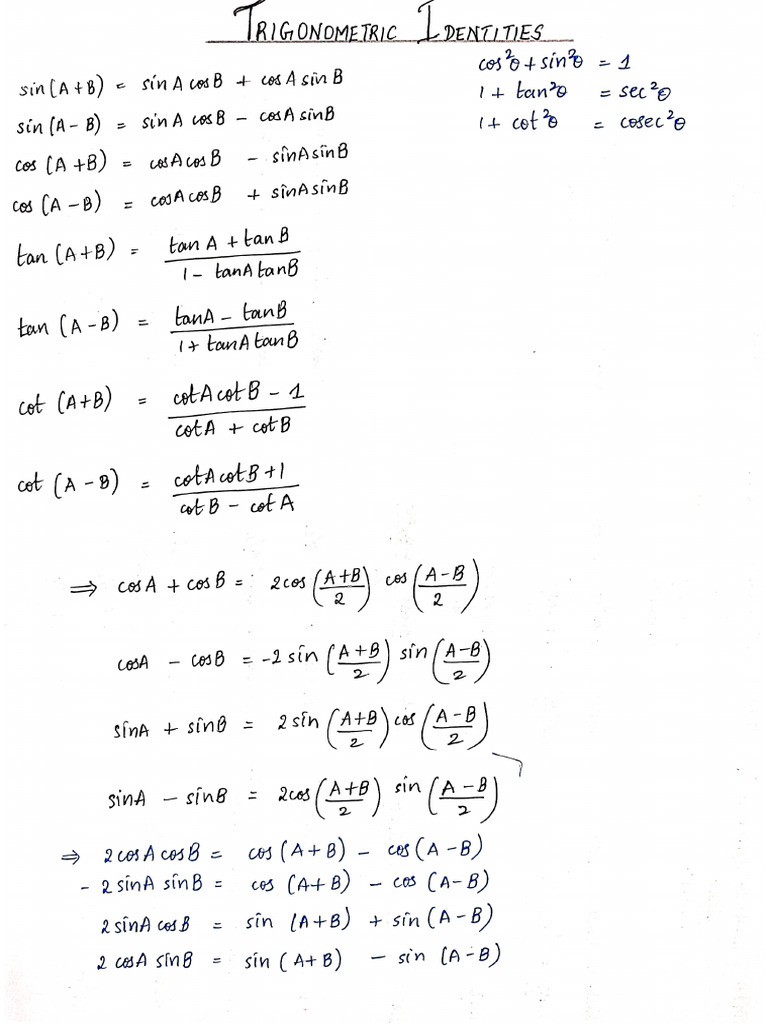 TRIGONOMETRIC IDENTITIES
cos²θ + sin²θ = 1
1 + tan²θ = sec²θ
1 + cot²θ = cosec²θ
sin(A+B) = sinA cosB + cosA sinB
sin(A-B) = sinA cosB - cosA sinB
cos(A+B) = cosA cosB - sinA sinB
cos(A-B) = cosA cosB + sinA sinB
tan(A+B) = (tanA + tanB)/(1 - tanA tanB)
tan(A-B) = (tanA - tanB)/(1 + tanA tanB)
cot(A+B) = (cotA cotB - 1)/(cotA + cotB)
cot(A-B) = (cotA cotB + 1)/(cotB - cotA)
⇒ cosA + cosB = 2cos((A+B)/2) cos((A-B)/2)
cosA - cosB = -2 sin((A+B)/2) sin((A-B)/2)
sinA + sinB = 2 sin((A+B)/2) cos((A-B)/2)
sinA - sinB = 2cos((A+B)/2) sin((A-B)/2)
⇒ 2cosA cosB = cos(A+B) - cos(A-B)
-2 sinA sinB = cos(A+B) - cos(A-B)
2 sinA cosB = sin(A+B) + sin(A-B)
2 cosA sinB = sin(A+B) - sin(A-B)